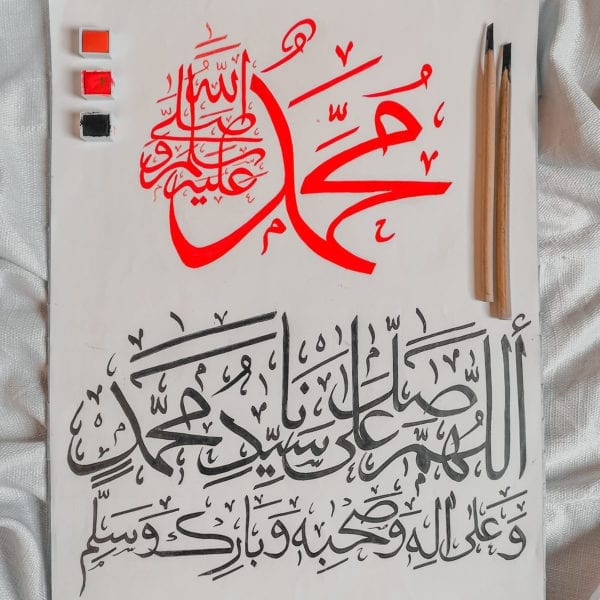 محمد صلى الله عليه وسلم
أللهم صل على سيدنا محمد
وعلى اله وصحبه وبارك وسلم